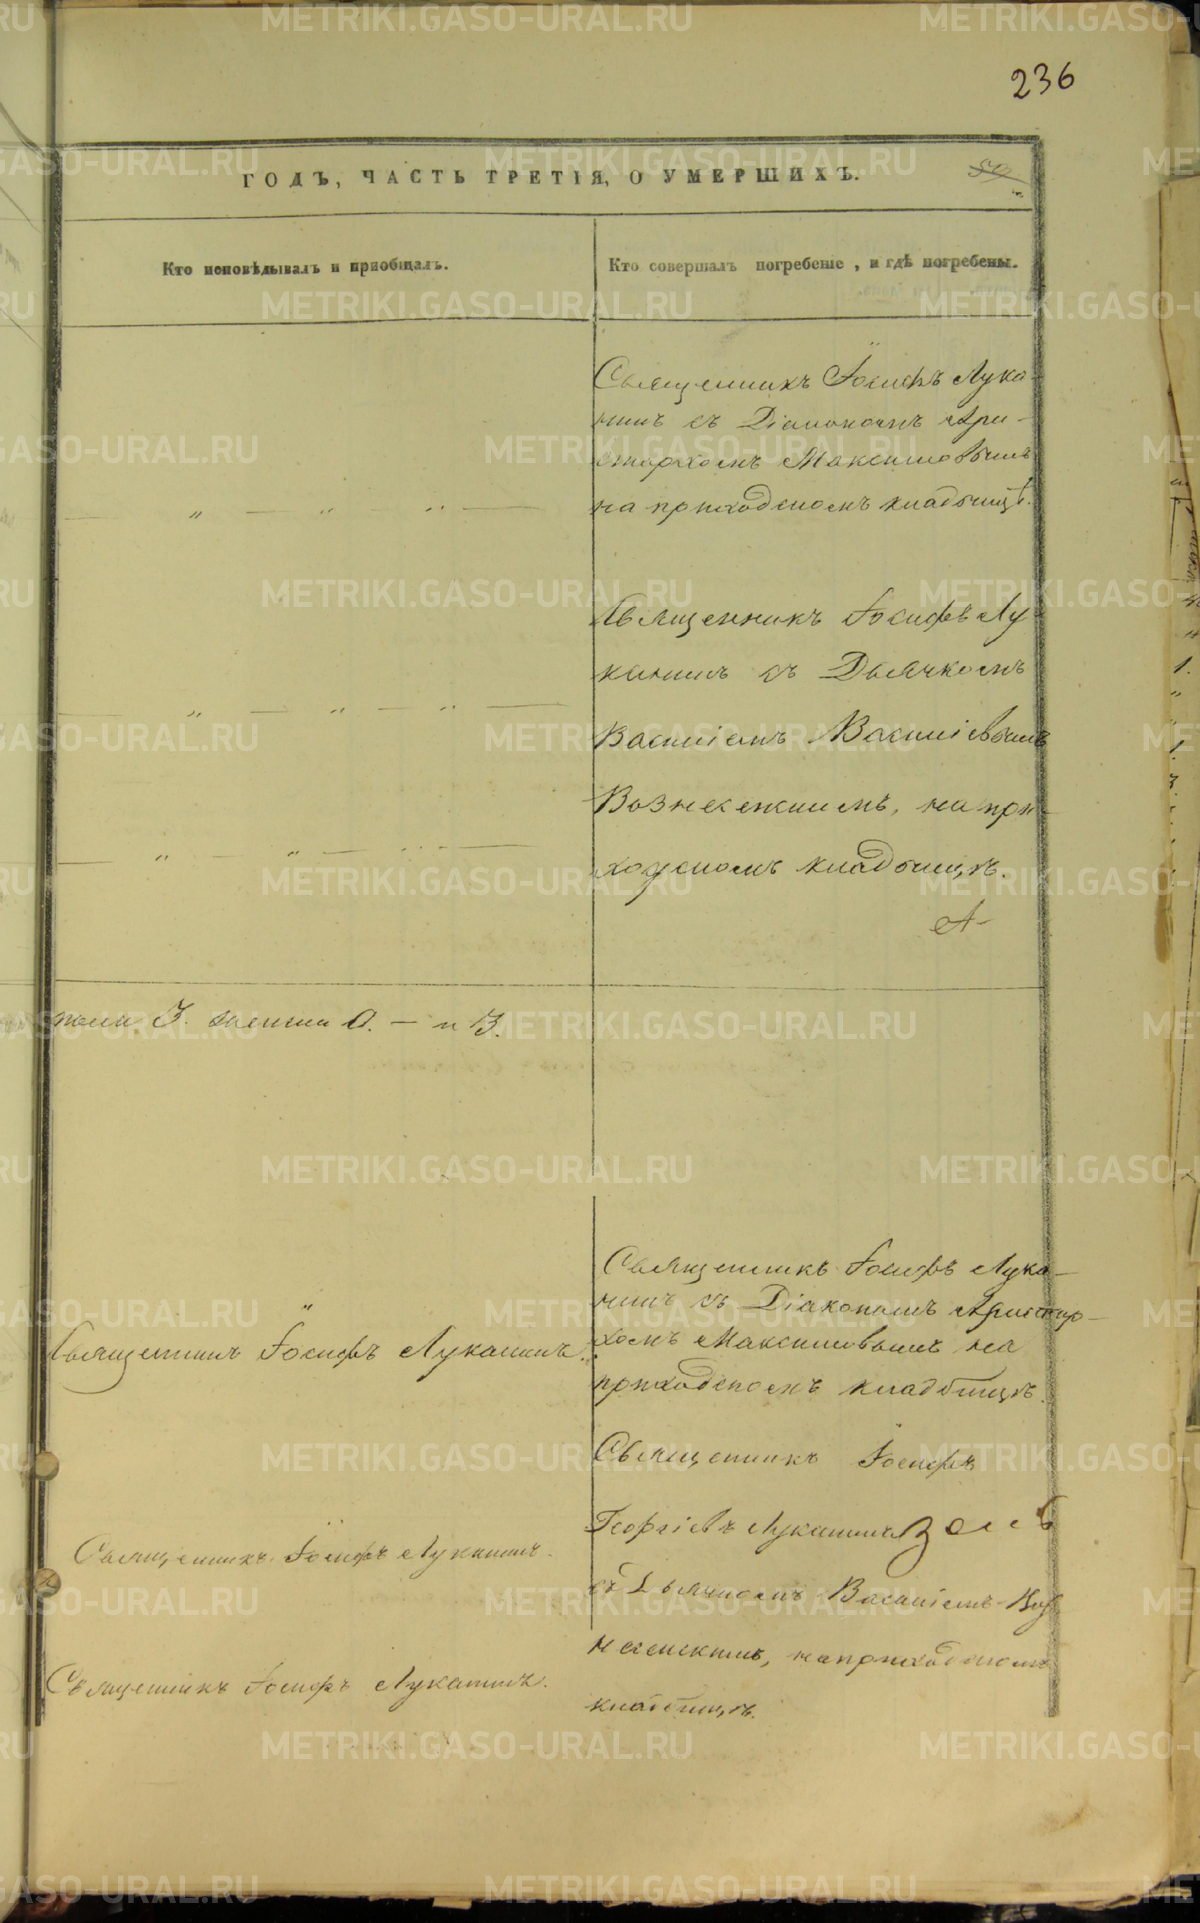 236
ГОДЪ, ЧАСТЬ ТРЕТІЯ, О УМЕРШИХЪ.
Кто исповѣдывалъ и пріобщалъ.
Кто совершалъ погребеніе, и гдѣ погребены.
Священникъ Іосифъ Лука-
нинъ съ Діакономъ Ари-
стархомъ Максимовымъ
на приходскомъ кладбищѣ.
Священникъ Іосифъ Лу-
канинъ съ Дьячкомъ
Василіемъ Василіевымъ
Вознесенскимъ, на при-
ходскомъ кладбищѣ.
пола 3. женска 0. — и 3.
Священникъ Іосифъ Лука-
нинъ съ Діакономъ Аристар-
хомъ Максимовымъ на
приходскомъ кладбищѣ.
Священникъ Іосифъ Луканинъ.
Священникъ Іосифъ
Георгіевъ Луканинъ
съ Дьячкомъ Василіемъ Воз-
несенскимъ, на приходскомъ
кладбищѣ.
Священникъ Іосифъ Луканинъ.
Священникъ Іосифъ Луканинъ.
METRIKI.GASO-URAL.RU